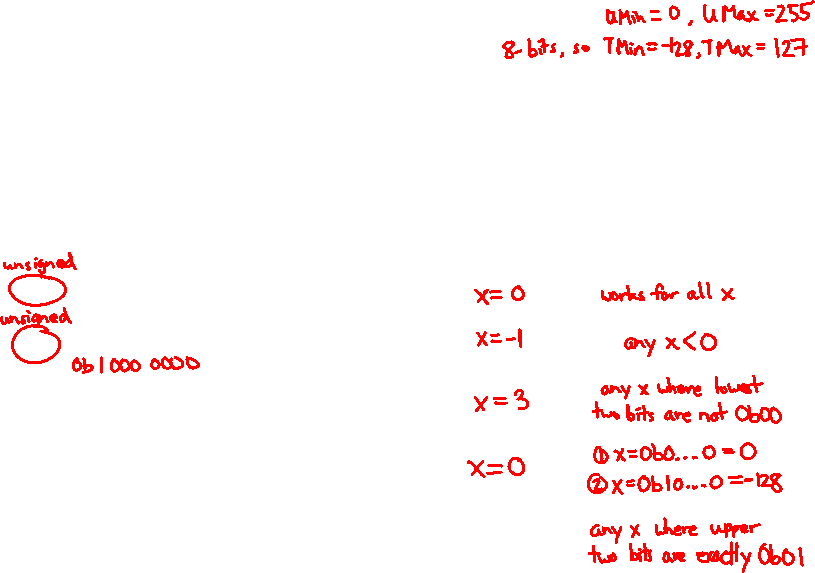 UMin = 0, UMax = 255
8-bits, so TMin = -128, TMax = 127
unsigned
unsigned
0b1000 0000
x = 0 works for all x
x = -1 any x < 0
x = 3 any x where lowest
two bits are not 0b00
x = 0 ① x = 0b0...0 = 0
② x = 0b10...0 = -128
any x where upper
two bits are exactly 0b01